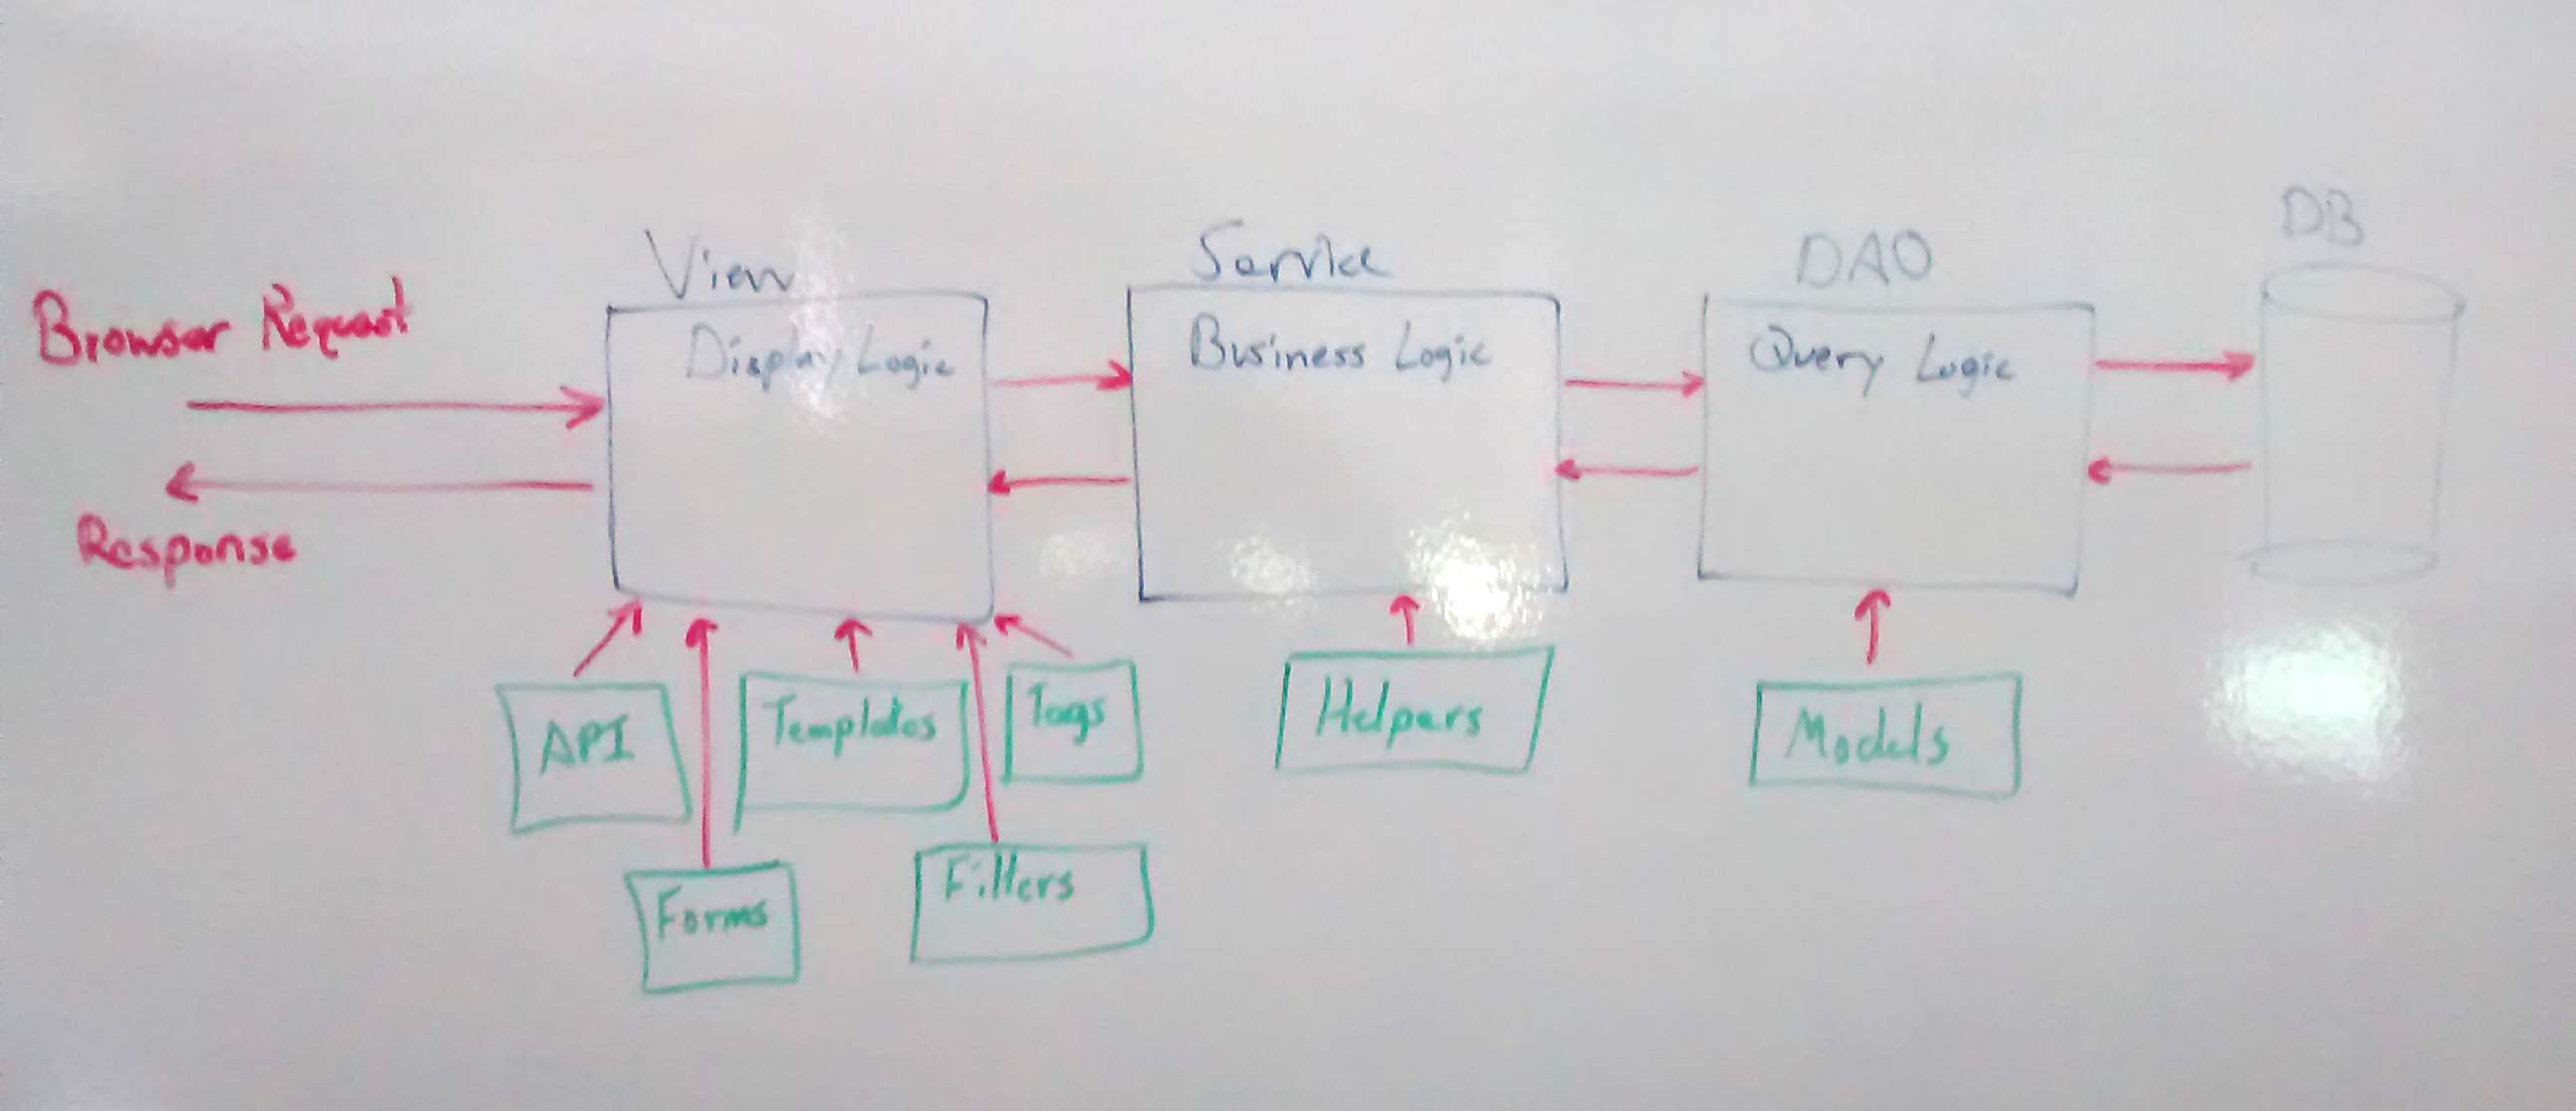 Browser Request
Response
View
Display Logic
Service
Business Logic
DAO
Query Logic
DB
API
Templates
Tags
Forms
Filters
Helpers
Models